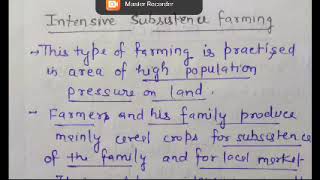 Master Recorder
Intensive Subsistence farming
→ This type of farming is practised
in area of high population
pressure on land.
- Farmers and his family produce
mainly cereal crops for subsistence
of the family and for local market